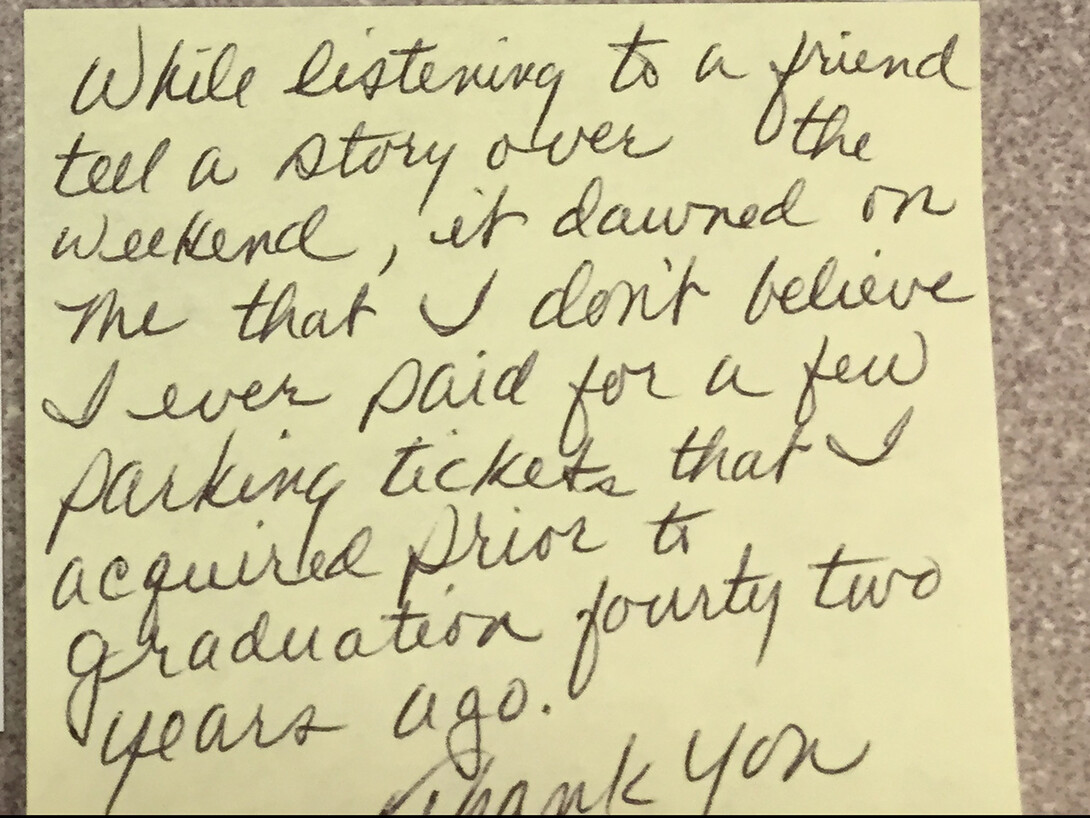 While listening to a friend
tell a story over the
weekend, it dawned on
me that I don't believe
I ever paid for a few
parking tickets that I
acquired prior to
graduation fourty two
years ago.
Thank you